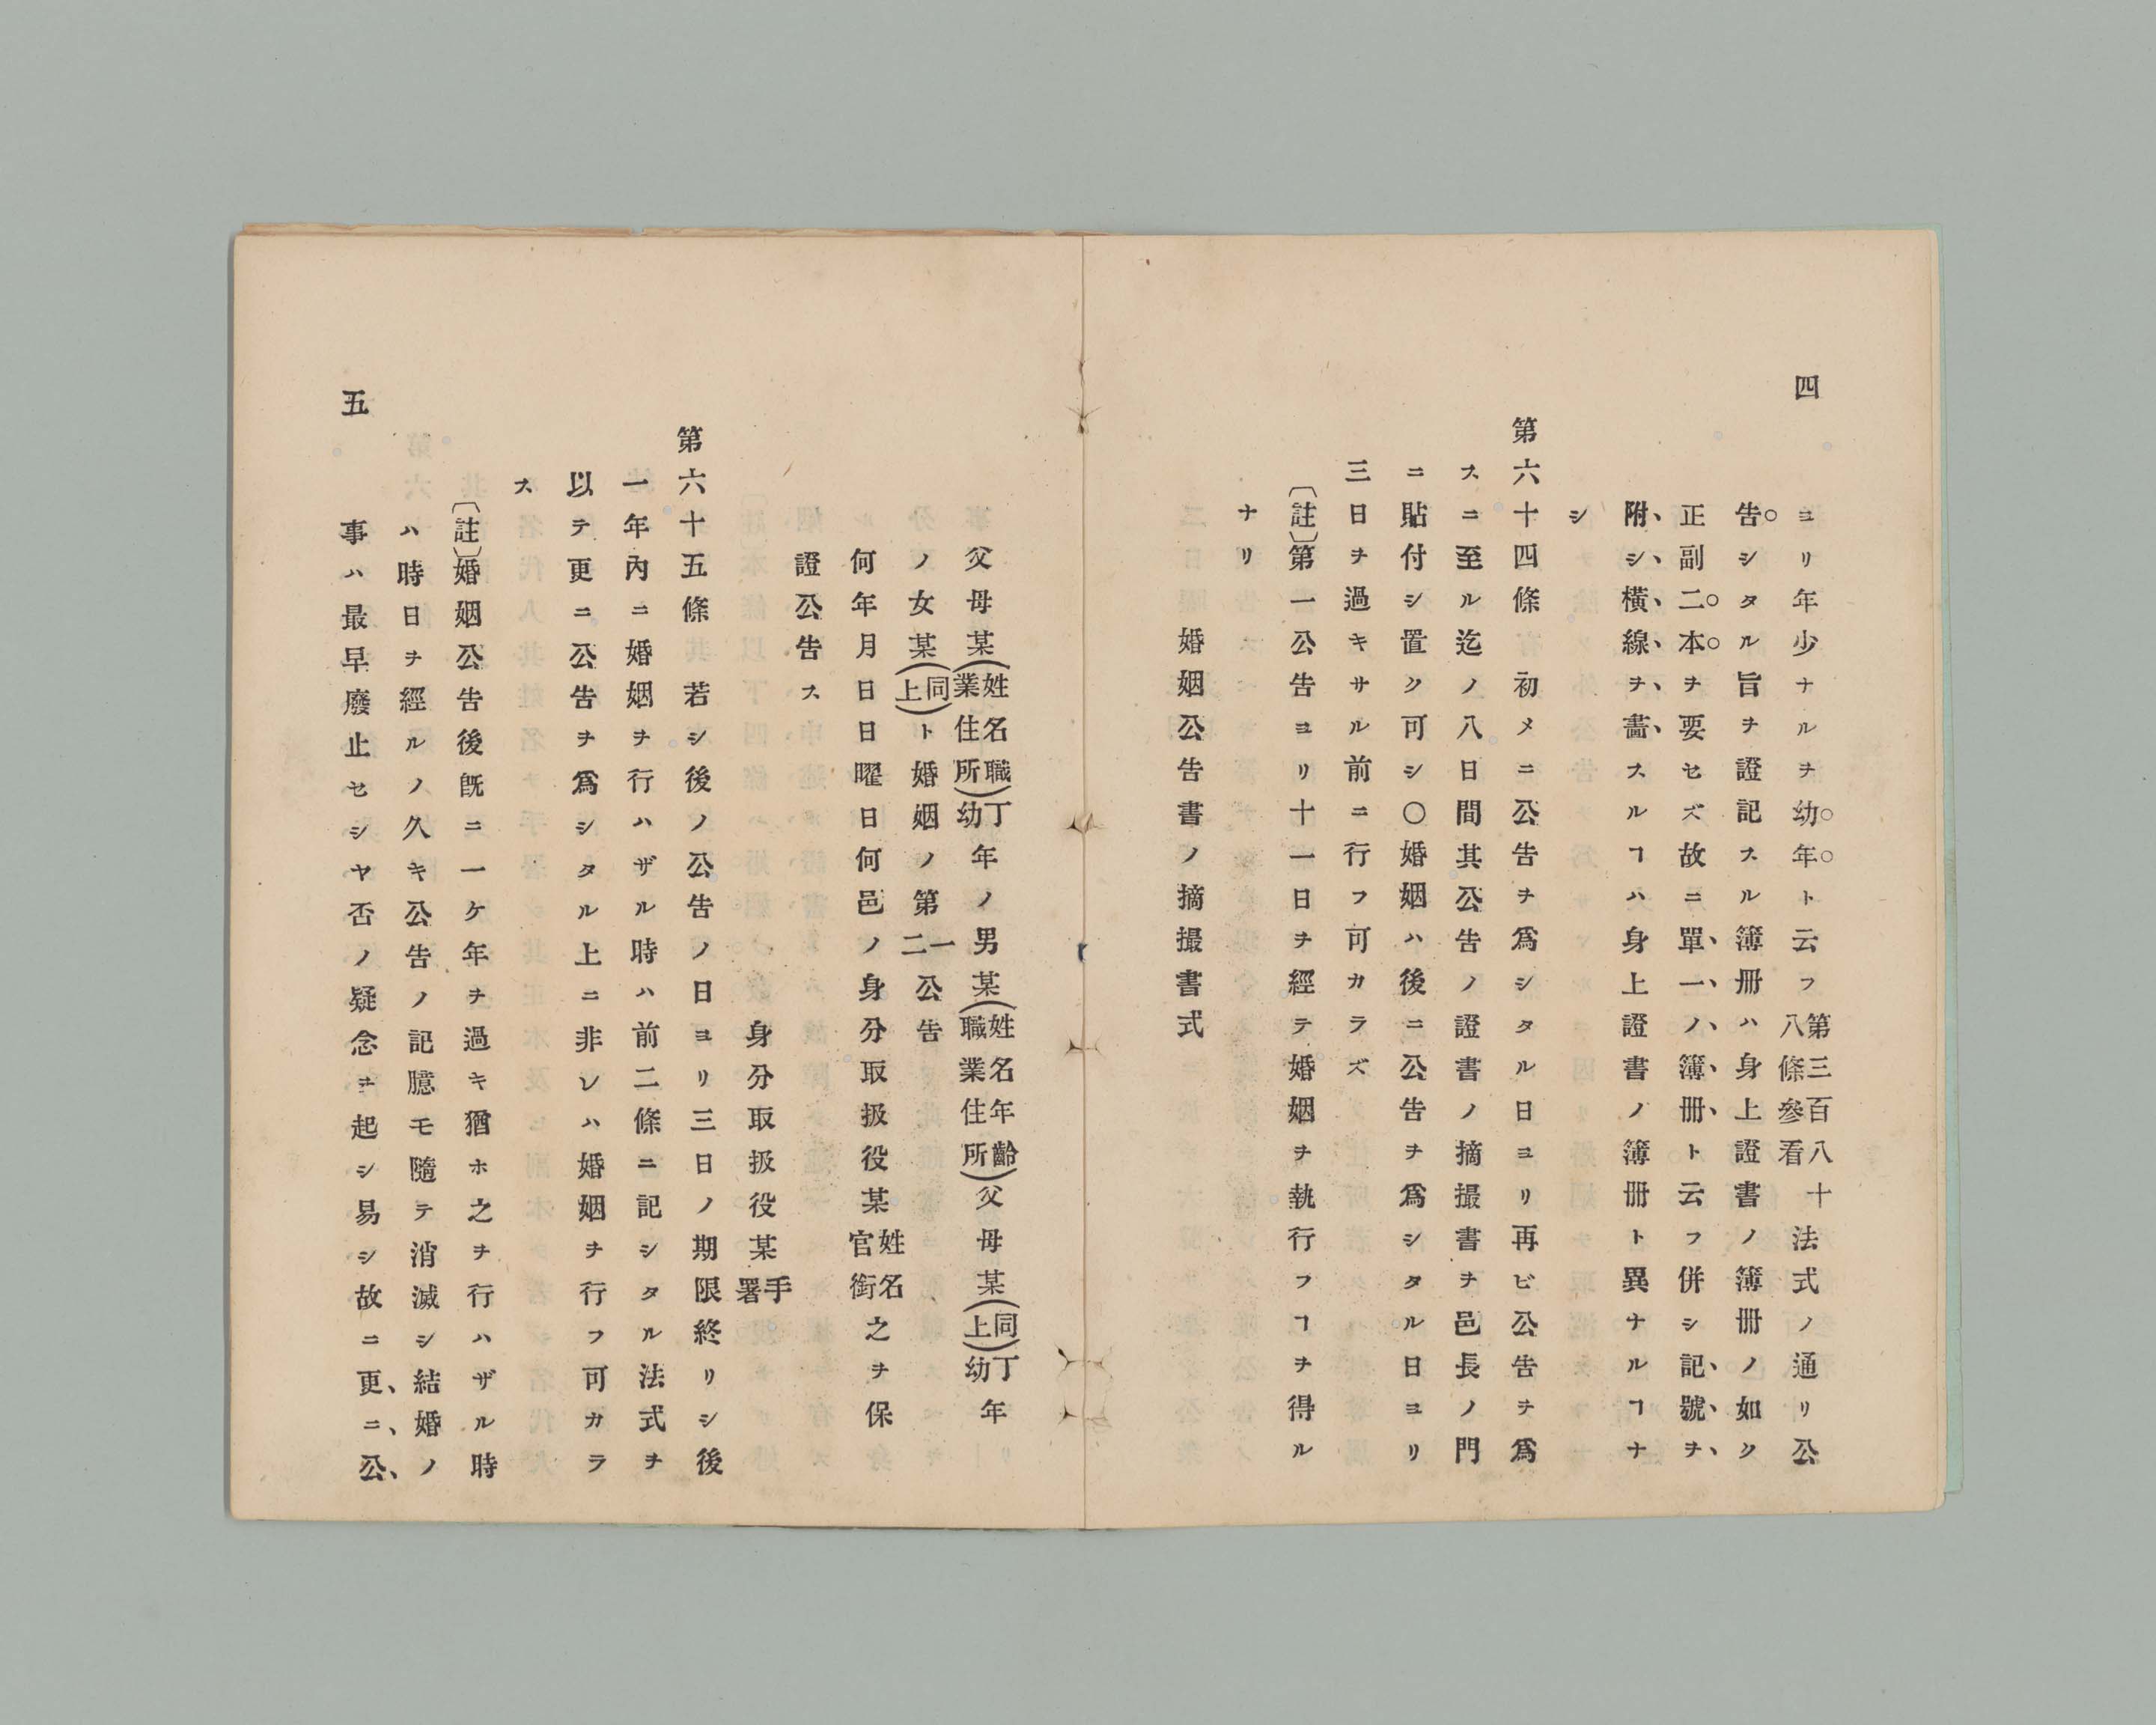 四
ヨリ年少ナルヲ幼年ト云フ第三百八十八條參看法式ノ通リ公
告シタル旨ヲ證記スル簿冊ハ身上證書ノ簿冊ノ如ク
正副二本ヲ要セズ故ニ單一ノ簿冊ト云フ併シ記號ヲ
附シ横線ヲ畵スルヿハ身上證書ノ簿冊ト異ナルヿナ
シ
第六十四條 初メニ公告ヲ爲シタル日ヨリ再ビ公告ヲ爲
スニ至ル迄ノ八日間其公告ノ證書ノ摘撮書ヲ邑長ノ門
ニ貼付シ置ク可シ〇婚姻ハ後ニ公告ヲ爲シタル日ヨリ
三日ヲ過キサル前ニ行フ可カラズ
〔註〕第一公告ヨリ十一日ヲ經テ婚姻ヲ執行フヿヲ得ル
ナリ
婚姻公告書ノ摘撮書式
父母某(姓名職業住所)丁幼年ノ男某(姓名年齡職業住所)父母某(同上)丁幼年
ノ女某(同上)ト婚姻ノ第一二公告
何年月日日曜日何邑ノ身分取扱役某姓名官銜之ヲ保
證公告ス
身分取扱役某手署
第六十五條 若シ後ノ公告ノ日ヨリ三日ノ期限終リシ後
一年內ニ婚姻ヲ行ハザル時ハ前二條ニ記シタル法式ヲ
以テ更ニ公告ヲ爲シタル上ニ非レハ婚姻ヲ行フ可カラ
ス
〔註〕婚姻公告後既ニ一ケ年ヲ過キ猶ホ之ヲ行ハザル時
ハ時日ヲ經ルノ久キ公告ノ記臆モ隨テ消滅シ結婚ノ
事ハ最早廢止セシヤ否ノ疑念ヲ起シ易シ故ニ更ニ公
五